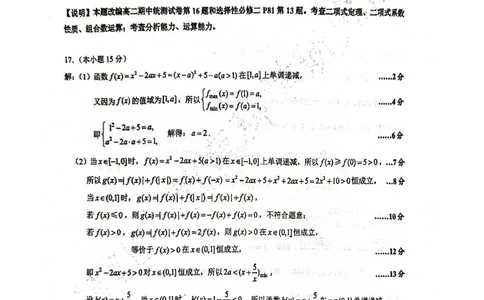 【说明】本题改编高二期中统测试卷第 16 题和选择性必修二 P81 第 13 题。考查二项式定理、二项式系数
性质、组合数运算；考查分析能力、运算能力。
17.（本小题 15 分）
解:（1）函数 f(x)=x²-2ax+5=(x-a)²+5-a(a>1)在[1,a]上单调递减, ……2分
又因为 f(x)的值域为[1,a], 所以{f_max(x)=f(1)=a, f_min(x)=f(a)=1, ……4分
即{1²-2a+5=a, a²-2a·a+5=1, 解得: a=2. ……6分
（2）当x∈[-1,0]时, f(x)=x²-2ax+5(a>1)在x∈[-1,0]上单调递减, 所以f(x)≥f(0)=5>0, …7分
所以g(x)=|f(x)|+f(|x|)=f(x)+f(-x)=x²-2ax+5+x²+2ax+5=2x²+10>0恒成立, …8分
当x∈(0,1]时, g(x)=|f(x)|+f(|x|)=|f(x)|+f(x),
若f(x)≤0, 则g(x)=|f(x)|+f(x)=-f(x)+f(x)=0, 不符合题意; ……10分
若f(x)>0, g(x)=|f(x)|+f(x)=2f(x), 则g(x)>0在x∈(0,1]恒成立,
等价于f(x)>0在x∈(0,1]恒成立, ……12分
即x²-2ax+5>0对x∈(0,1]恒成立, 所以2a<(x+5/x)_min, ……13分